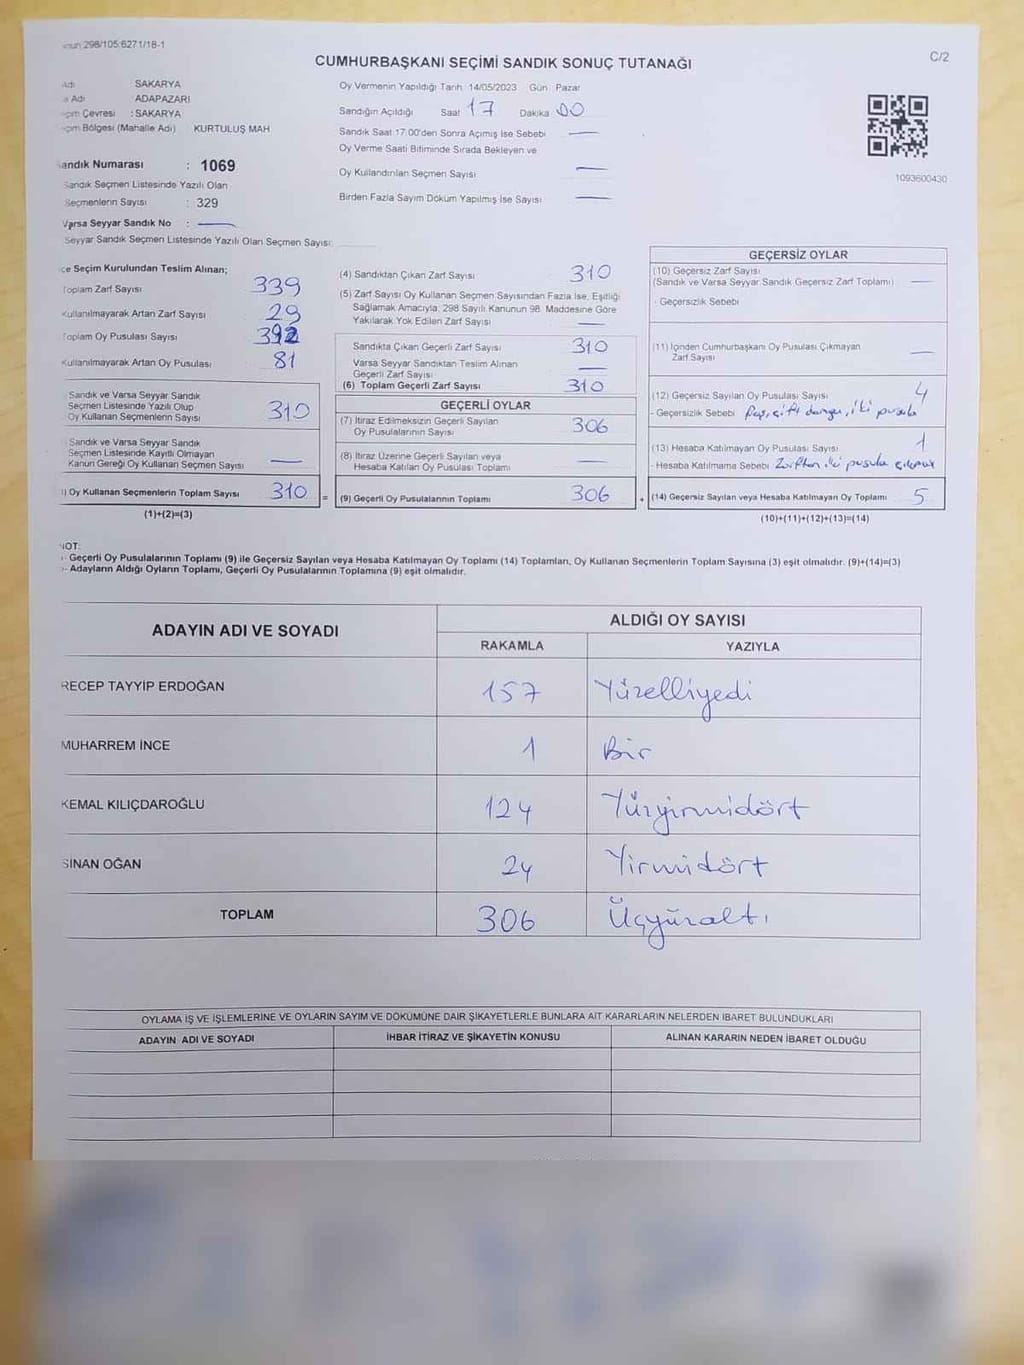 298/105:6271/18-1
C/2
CUMHURBAŞKANI SEÇİMİ SANDIK SONUÇ TUTANAĞI
Adı : SAKARYA
Adı : ADAPAZARI
Çevresi : SAKARYA
Bölgesi (Mahalle Adı) KURTULUŞ MAH
Sandık Numarası : 1069
Sandık Seçmen Listesinde Yazılı Olan
Seçmenlerin Sayısı : 329
Varsa Seyyar Sandık No : —
Seyyar Sandık Seçmen Listesinde Yazılı Olan Seçmen Sayısı:
Oy Vermenin Yapıldığı Tarih 14/05/2023 Gün Pazar
Sandığın Açıldığı Saat 17 Dakika 00
Sandık Saat 17.00'den Sonra Açımış İse Sebebi —
Oy Verme Saati Bitiminde Sırada Bekleyen ve
Oy Kullandırılan Seçmen Sayısı —
Birden Fazla Sayım Döküm Yapılmış İse Sayısı —
1093600430
Seçim Kurulundan Teslim Alınan;
Toplam Zarf Sayısı 339
Kullanılmayarak Artan Zarf Sayısı 29
Toplam Oy Pusulası Sayısı 392
Kullanılmayarak Artan Oy Pusulası 81
Sandık ve Varsa Seyyar Sandık
Seçmen Listesinde Yazılı Olup
Oy Kullanan Seçmenlerin Sayısı 310
Sandık ve Varsa Seyyar Sandık
Seçmen Listesinde Kayıtlı Olmayan
Kanun Gereği Oy Kullanan Seçmen Sayısı —
Oy Kullanan Seçmenlerin Toplam Sayısı 310 =
(1)+(2)=(3)
(4) Sandıktan Çıkan Zarf Sayısı 310
(5) Zarf Sayısı Oy Kullanan Seçmen Sayısından Fazla İse, Eşitliği
Sağlamak Amacıyla, 298 Sayılı Kanunun 98. Maddesine Göre
Yakılarak Yok Edilen Zarf Sayısı —
Sandıkta Çıkan Geçerli Zarf Sayısı 310
Varsa Seyyar Sandıktan Teslim Alınan
Geçerli Zarf Sayısı —
(6) Toplam Geçerli Zarf Sayısı 310
GEÇERLİ OYLAR
(7) İtiraz Edilmeksizin Geçerli Sayılan
Oy Pusulalarının Sayısı 306
(8) İtiraz Üzerine Geçerli Sayılan veya
Hesaba Katılan Oy Pusulası Toplamı —
(9) Geçerli Oy Pusulalarının Toplamı 306 +
GEÇERSİZ OYLAR
(10) Geçersiz Zarf Sayısı
(Sandık ve Varsa Seyyar Sandık Geçersiz Zarf Toplamı) —
- Geçersizlik Sebebi
(11) İçinden Cumhurbaşkanı Oy Pusulası Çıkmayan
Zarf Sayısı —
(12) Geçersiz Sayılan Oy Pusulası Sayısı 4
- Geçersizlik Sebebi çift damga, iki pusula
(13) Hesaba Katılmayan Oy Pusulası Sayısı 1
- Hesaba Katılmama Sebebi Zarftan iki pusula çıkması
(14) Geçersiz Sayılan veya Hesaba Katılmayan Oy Toplamı 5
(10)+(11)+(12)+(13)=(14)
NOT:
- Geçerli Oy Pusulalarının Toplamı (9) ile Geçersiz Sayılan veya Hesaba Katılmayan Oy Toplamı (14) Toplamları, Oy Kullanan Seçmenlerin Toplam Sayısına (3) eşit olmalıdır. (9)+(14)=(3)
- Adayların Aldığı Oyların Toplamı, Geçerli Oy Pusulalarının Toplamına (9) eşit olmalıdır.
ADAYIN ADI VE SOYADI
ALDIĞI OY SAYISI
RAKAMLA YAZIYLA
RECEP TAYYİP ERDOĞAN 157 Yüzelliyedi
MUHARREM İNCE 1 Bir
KEMAL KILIÇDAROĞLU 124 Yüzyirmidört
SİNAN OĞAN 24 Yirmidört
TOPLAM 306 Üçyüzaltı
OYLAMA İŞ VE İŞLEMLERİNE VE OYLARIN SAYIM VE DÖKÜMÜNE DAİR ŞİKAYETLERLE BUNLARA AİT KARARLARIN NELERDEN İBARET BULUNDUKLARI
ADAYIN ADI VE SOYADI İHBAR İTİRAZ VE ŞİKAYETİN KONUSU ALINAN KARARIN NEDEN İBARET OLDUĞU